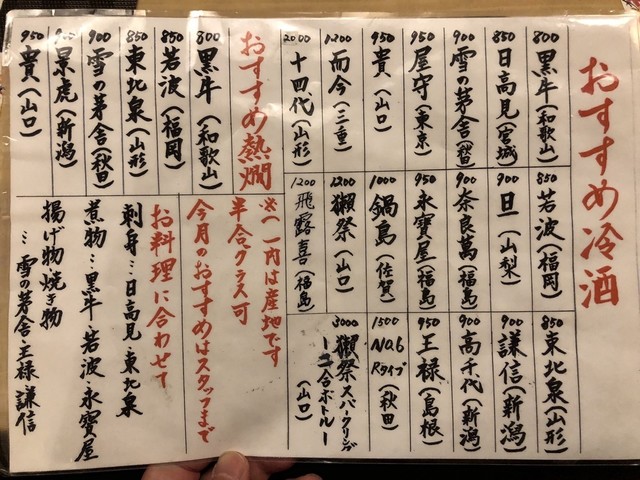 おすすめ冷酒
800 黒牛(和歌山)
850 日高見(宮城)
900 雪の茅舎(秋田)
950 屋守(東京)
950 貴(山口)
1200 而今(三重)
2000 十四代(山形)
850 若波(福岡)
900 旦(山梨)
900 奈良萬(福島)
950 永寶屋(福島)
1000 鍋島(佐賀)
1200 獺祭(山口)
1200 飛露喜(福島)
850 東北泉(山形)
900 謙信(新潟)
900 高千代(新潟)
950 王禄(島根)
1500 NO.6 Rタイプ(秋田)
3000 獺祭スパークリング
ー二合ボトルー
(山口)
おすすめ熱燗
800 黒牛(和歌山)
850 若波(福岡)
850 東北泉(山形)
900 雪の茅舎(秋田)
900 景虎(新潟)
950 貴(山口)
※( )内は産地です
半合グラス可
今月のおすすめはスタッフまで
お料理に合わせて
刺身…日高見・東北泉
煮物…黒牛・若波・永寶屋
揚げ物焼き物
…雪の茅舎・王禄・謙信